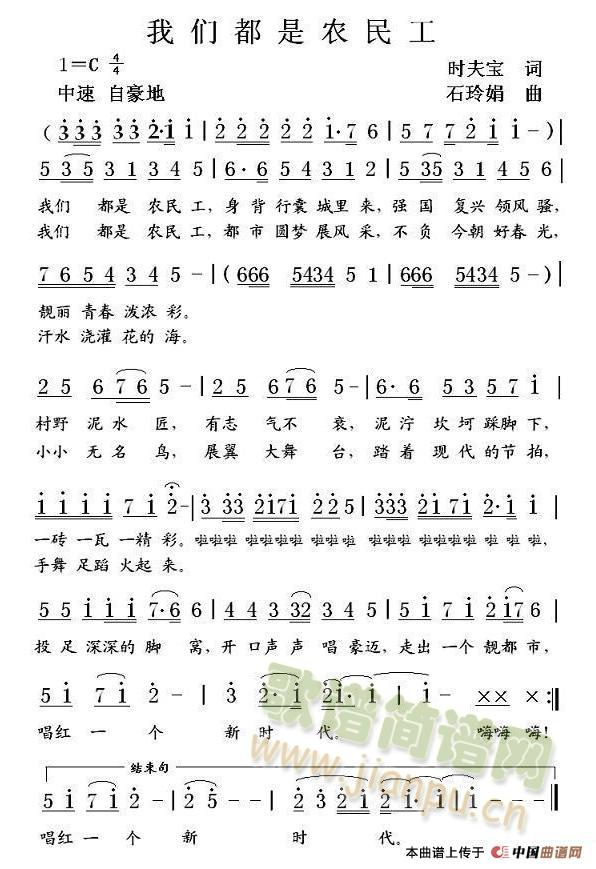 我们都是农民工
1=C 4/4 时夫宝 词
中速 自豪地 石玲娟 曲
(333 333 2·1 1|222 222 1·7 6|577 221 1-)|
535 31 34 5|6·6 54 31 2|535 31 45 6|
我们 都是 农民 工,身 背 行囊 城里 来,强 国 复兴 领风 骚,
我们 都是 农民 工,都 市 圆梦 展风 采,不 负 今朝 好春 光,
7654 34 5-|(666 5434 51|666 5434 5-)|
靓丽 青春 泼浓 彩。
汗水 浇灌 花的 海。
25 676 5-|25 676 5-|6·6 53 57 1|
村野 泥水 匠,有志 气不 衰,泥泞 坎坷 踩脚 下,
小小 无名 鸟,展翼 大舞 台,踏着 现代 的节 拍,
1111 71 2-|333 2171 225|333 2171 2·1 1|
一砖 一瓦 一精 彩。啦啦啦 啦啦啦啦 啦啦啦 啦啦啦 啦啦啦啦 啦啦 啦,
手舞 足蹈 火起 来。
55 11 7·6|44 332 34|55 72 176|
投足 深深的 脚 窝,开口声声 唱 豪迈,走出一个 靓都市,
51 71 2-|3 2·1 21·1|1- ×××:‖
唱红 一 个 新 时 代。 嗨嗨 嗨!
结束句
51 71 2-|25--|323 212|1---‖
唱红 一 个 新 时 代。
歌谱简谱网
www.jianpu.cn
本曲谱上传于 中国曲谱网